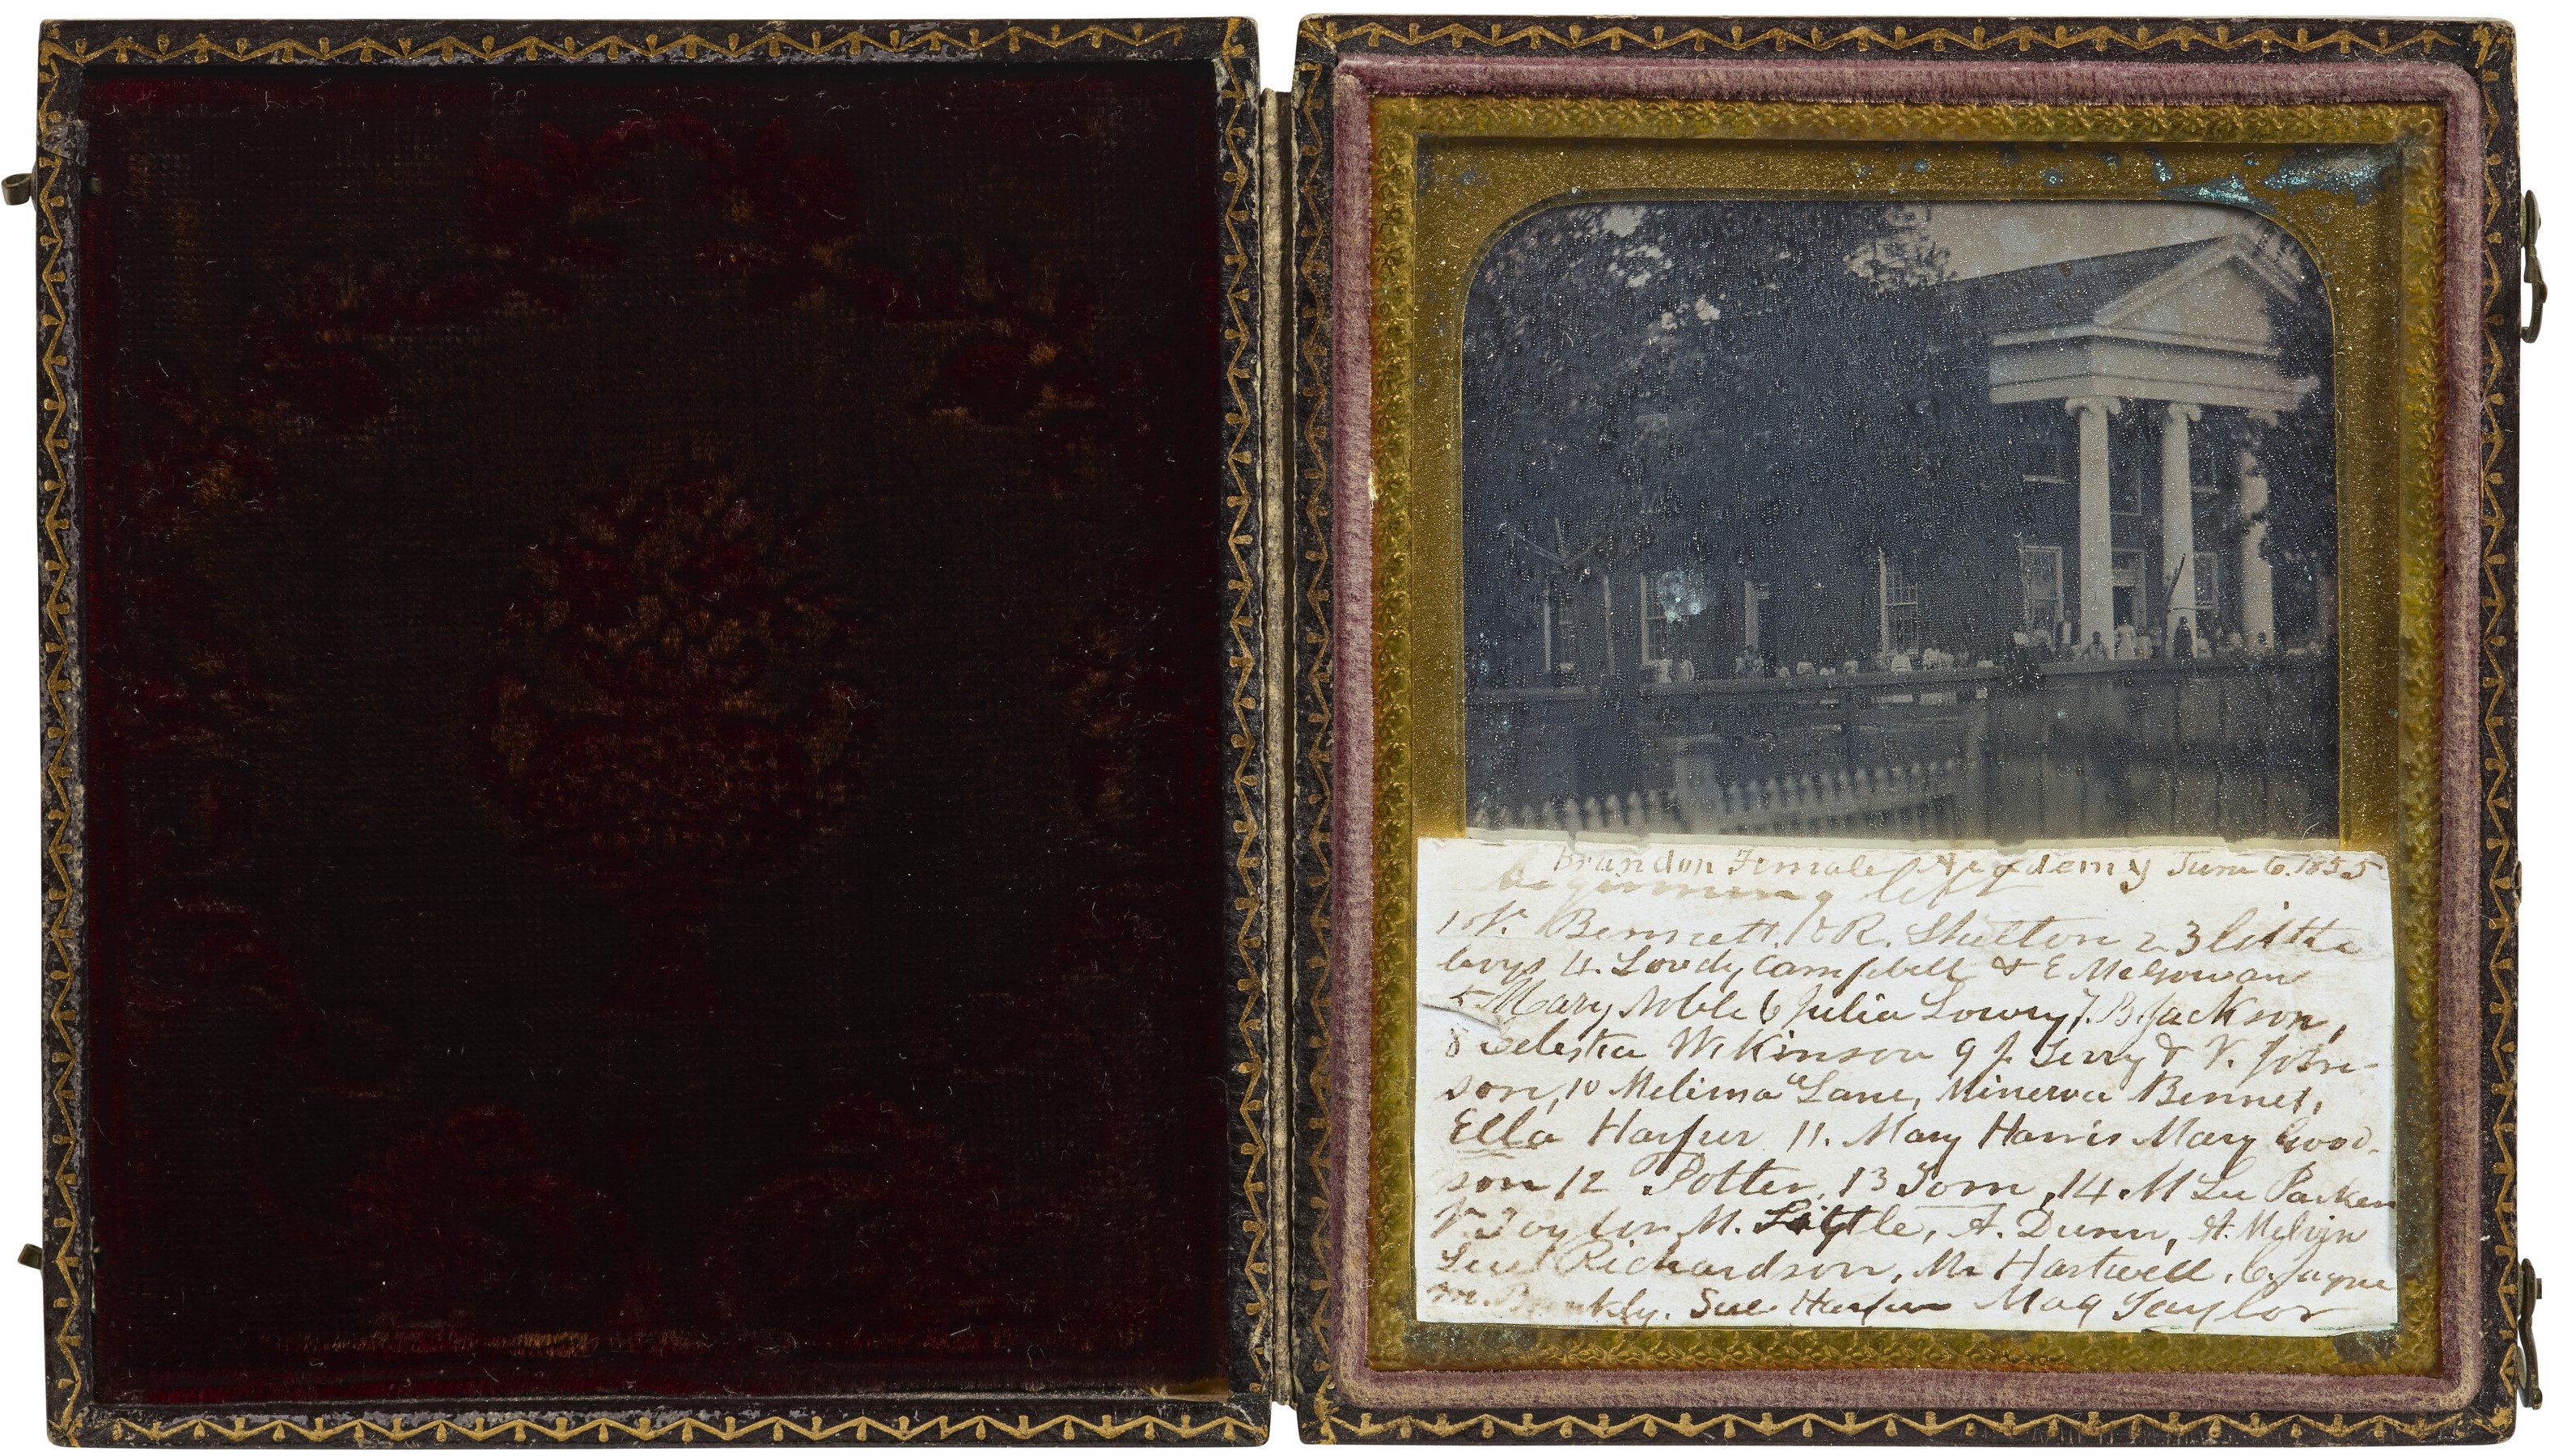 Brandon Female Academy June 6. 1855
beginning left
1 V. Bennett, & R. Shelton 2 3 little
boys 4. Loudy Campbell & E McGowan
5 Mary Noble 6 Julia Lowry 7. B Jackson,
8 Celestia Wilkinson 9 J. Terry & V. John-
son, 10 Melima Lane, Minerva Bennet,
Ella Harper 11. Mary Harris Mary Good-
son 12 Potter, 13 Tom, 14. M Lee Parker
V. Taylor M. Little, A. Dunn, H. Melvin
Richardson, Mr Hartwell, C. Jayne
M. Sue Harper Mag Taylor